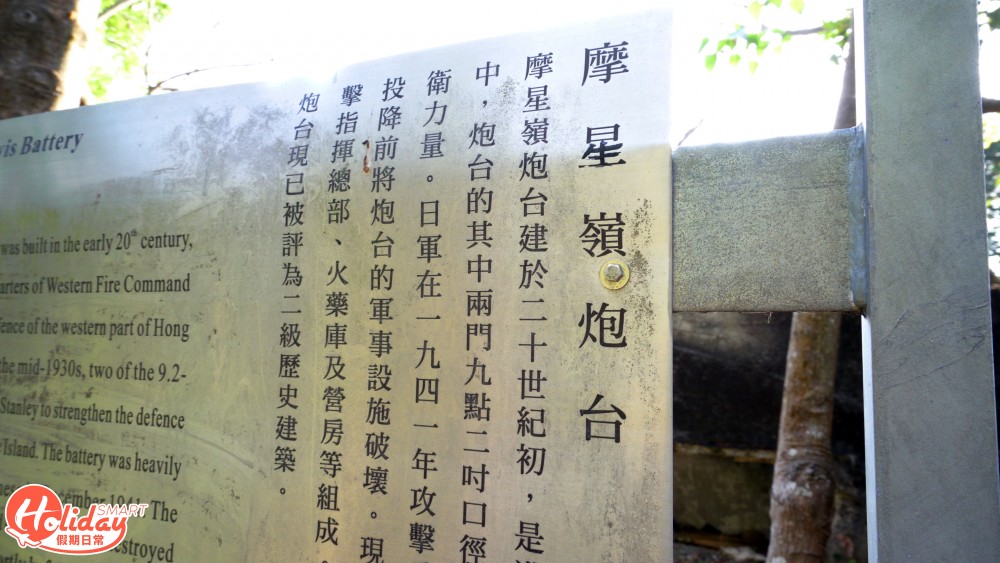 摩星嶺炮台
摩星嶺炮台建於二十世紀初，是
中，炮台的其中兩門九點二吋口徑
衛力量。日軍在一九四一年攻擊
投降前將炮台的軍事設施破壞。現
擊指揮總部、火藥庫及營房等組成。
炮台現已被評為二級歷史建築。
vis Battery
was built in the early 20th century,
arters of Western Fire Command
fence of the western part of Hong
the mid-1930s, two of the 9.2-
Stanley to strengthen the defence
Island. The battery was heavily
cember 1941. The
estroyed
SMART
Holiday
假期日常